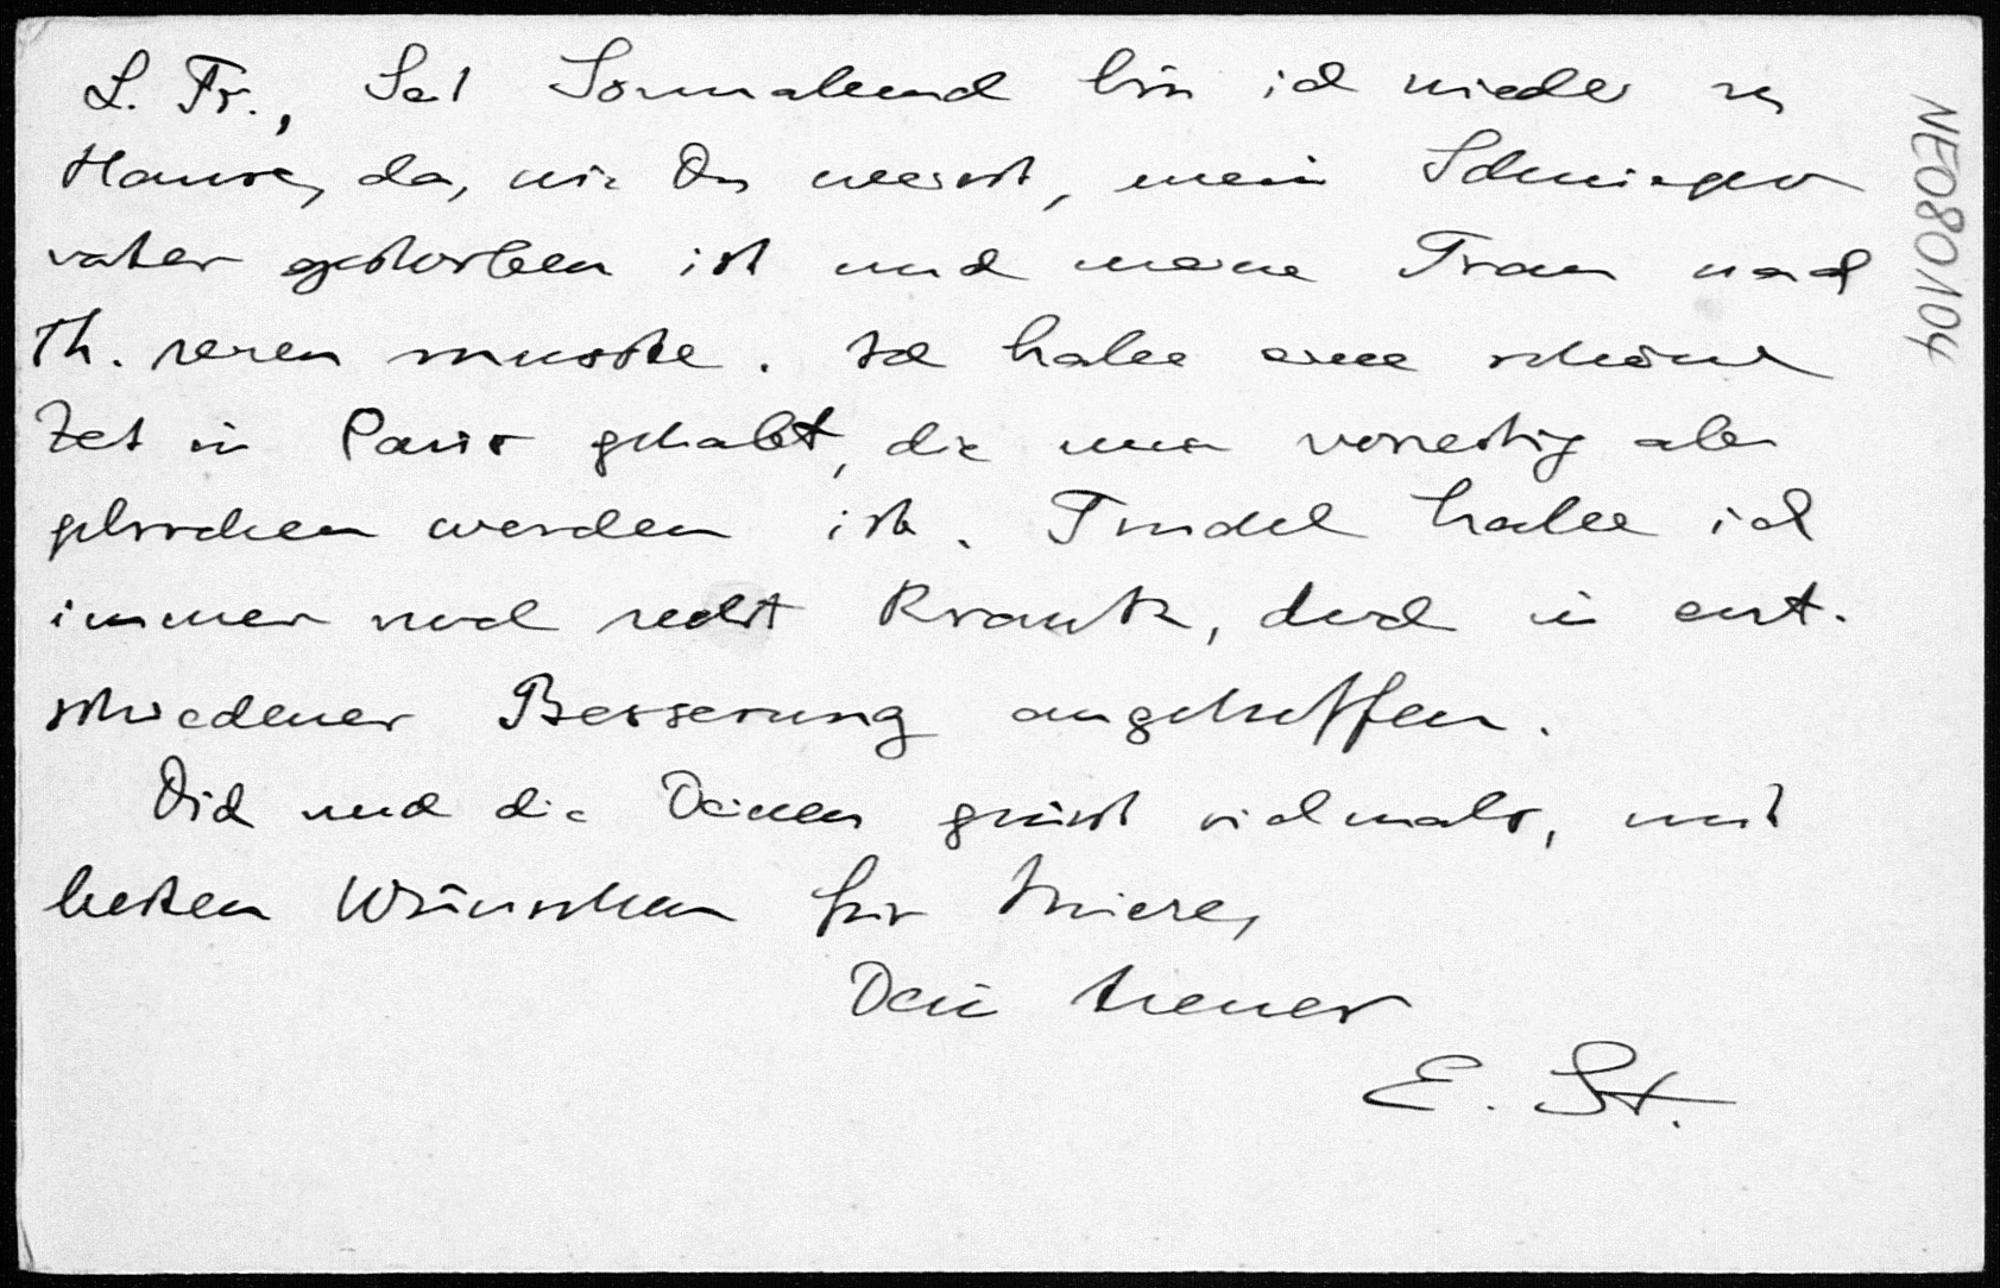 L. Fr., Seit Sonnabend bin ich wieder zu
Hause, da, wie Du weisst, mein Schwieger
vater gestorben ist und meine Frau nach
Th. reisen musste. Ich habe eine schöne
Zeit in Paris gehabt, die nun vorzeitig ab
gebrochen worden ist. Trudel habe ich
immer noch recht krank, doch in ent-
schiedener Besserung angetroffen.
Dich und die Deinen grüsst vielmals, mit
besten Wünschen für
Dein treuer
E. St.
NE0801104